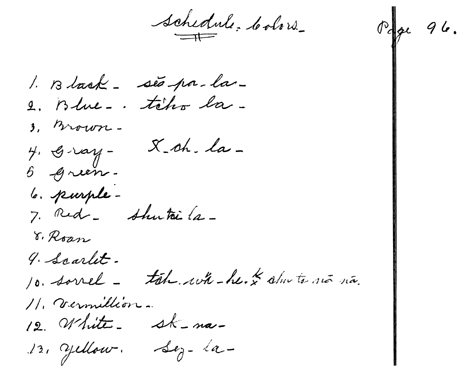 Schedule. Colors_ Page 96.
1. Black _ sĕs pa_ la_
2. Blue _ . tcho la_
3, Brown _
4. Gray _ X_ oh_ la_
5 Green _
6. purple _
7. Red_ shu tsi la_
8. Roan
9. Scarlet _
10. Sorrel _
11. Vermillion _
12. White _ sk_ na_
13, Yellow. sez_ la_